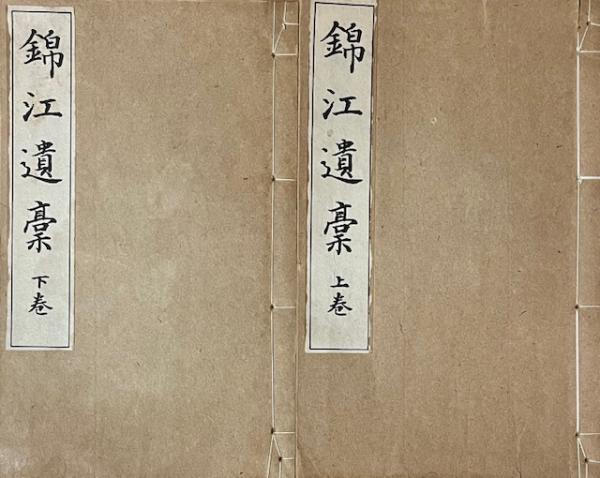 錦江遺稾 上巻
錦江遺稾 下巻